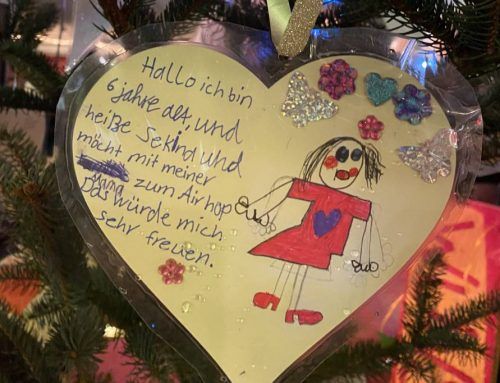 Hallo ich bin
6 jahre alt, und
heiße Sekind und
möcht mit meiner
zum Airhop
Das würde mich
sehr freuen.